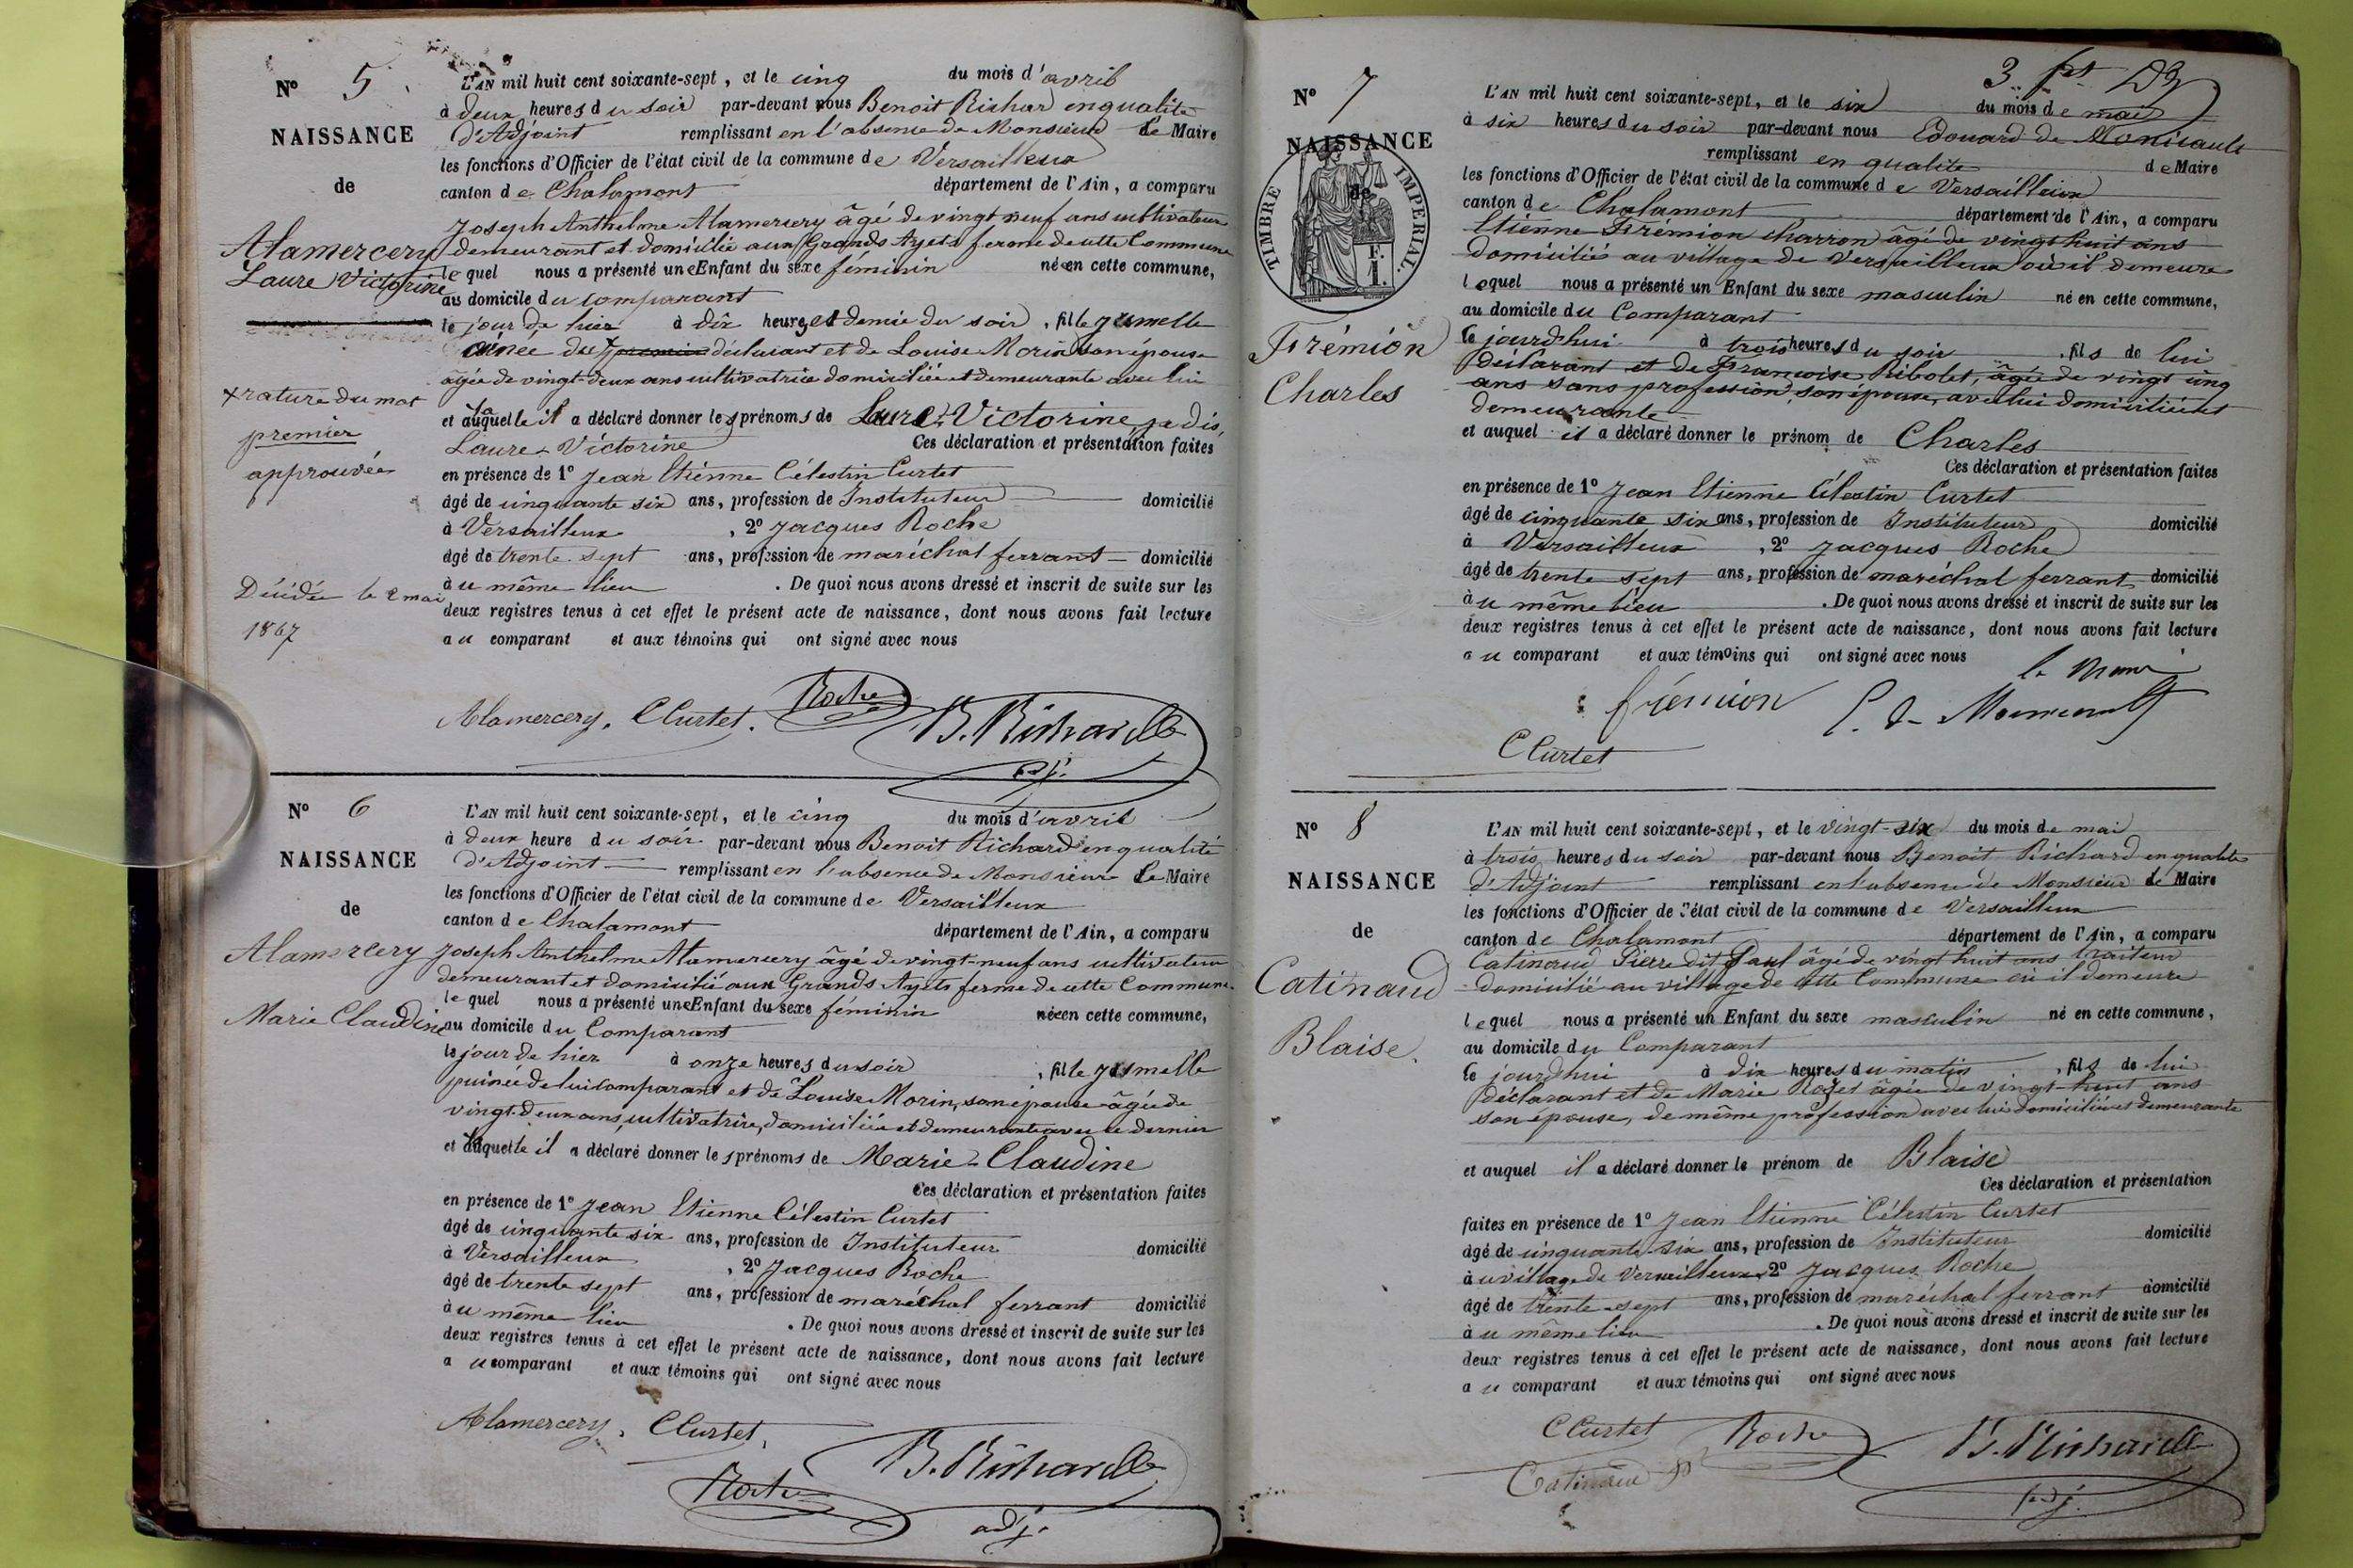 Nº 5
NAISSANCE
de
Alamercery
Laure Victorine
+ rature du mot
premier
approuvée
Décédée le 2 mai
1867
L'AN mil huit cent soixante-sept, et le cinq du mois d'avril
à deux heures du soir par-devant nous Benoit Richard en qualité
d'Adjoint remplissant en l'absence de Monsieur Le Maire
les fonctions d'Officier de l'état civil de la commune de Versailleux
canton de Chalamont département de l'Ain, a comparu
Joseph Anthelme Alamercery âgé de vingt neuf ans cultivateur
demeurant et domicilié aux Grands Ayets ferme de cette Commune
lequel nous a présenté une Enfant du sexe féminin née en cette commune,
au domicile du comparant
le jour de hier à dix heures et demie du soir, fille jumelle
ainée du premier déclarant et de Louise Morin son épouse
âgée de vingt-deux ans cultivatrice domiciliée et demeurante avec lui
et à laquelle il a déclaré donner les prénoms de Laure-Victorine, je dis,
Laure-Victorine Ces déclaration et présentation faites
en présence de 1º Jean Etienne Célestin Curtet
âgé de cinquante six ans, profession de Instituteur domicilié
à Versailleux, 2º Jacques Roche
âgé de trente-sept ans, profession de maréchal ferrant domicilié
au même lieu. De quoi nous avons dressé et inscrit de suite sur les
deux registres tenus à cet effet le présent acte de naissance, dont nous avons fait lecture
au comparant et aux témoins qui ont signé avec nous
Alamercery. C Curtet. Roche B. Richard
adj.
Nº 6
NAISSANCE
de
Alamercery
Marie Claudine
L'AN mil huit cent soixante-sept, et le cinq du mois d'avril
à deux heure du soir par-devant nous Benoit Richard en qualité
d'Adjoint remplissant en l'absence de Monsieur Le Maire
les fonctions d'Officier de l'état civil de la commune de Versailleux
canton de Chalamont département de l'Ain, a comparu
Joseph Anthelme Alamercery âgé de vingt-neuf ans cultivateur
demeurant et domicilié aux Grands Ayets ferme de cette Commune.
lequel nous a présenté une Enfant du sexe féminin née en cette commune,
au domicile du Comparant
le jour de hier à onze heures du soir, fille jumelle
puinée de lui comparant et de Louise Morin, son épouse âgée de
vingt-deux ans, cultivatrice, domiciliée et demeurante avec ce dernier
et à laquelle il a déclaré donner les prénoms de Marie-Claudine
Ces déclaration et présentation faites
en présence de 1º Jean Etienne Célestin Curtet
âgé de cinquante six ans, profession de Instituteur domicilié
à Versailleux, 2º Jacques Roche
âgé de trente sept ans, profession de maréchal ferrant domicilié
au même lieu. De quoi nous avons dressé et inscrit de suite sur les
deux registres tenus à cet effet le présent acte de naissance, dont nous avons fait lecture
au comparant et aux témoins qui ont signé avec nous
Alamercery. C Curtet. B. Richard
Roche adj.
3
Nº 7
NAISSANCE
de
TIMBRE IMPERIAL.
F.
1.
Frémion
Charles
L'AN mil huit cent soixante-sept, et le six du mois de mai
à six heures du soir par-devant nous Edouard de Monicault
remplissant en qualite de Maire
les fonctions d'Officier de l'état civil de la commune de Versailleux
canton de Chalamont département de l'Ain, a comparu
Etienne Frémion charron âgé de vingt huit ans
domicilié au village de Versailleux où il demeure
lequel nous a présenté un Enfant du sexe masculin né en cette commune,
au domicile du Comparant
le jourd'hui à trois heures du soir, fils de lui
déclarant et de Françoise Ribolet, âgée de vingt cinq
ans sans profession, son épouse, avec lui domiciliée et
demeurante
et auquel il a déclaré donner le prénom de Charles
Ces déclaration et présentation faites
en présence de 1º Jean Etienne Célestin Curtet
âgé de cinquante six ans, profession de Instituteur domicilié
à Versailleux, 2º Jacques Roche
âgé de trente sept ans, profession de maréchal ferrant domicilié
au même lieu. De quoi nous avons dressé et inscrit de suite sur les
deux registres tenus à cet effet le présent acte de naissance, dont nous avons fait lecture
au comparant et aux témoins qui ont signé avec nous
le Maire
frémion E. de Monicault
C Curtet
Nº 8
NAISSANCE
de
Catinaud
Blaise.
L'AN mil huit cent soixante-sept, et le vingt-six du mois de mai
à trois heures du soir par-devant nous Benoit Richard en qualité
d'Adjoint remplissant en l'absence de Monsieur le Maire
les fonctions d'Officier de l'état civil de la commune de Versailleux
canton de Chalamont département de l'Ain, a comparu
Catinaud Pierre dit Paul âgé de vingt huit ans traiteur
domicilié au village de cette Commune où il demeure
lequel nous a présenté un Enfant du sexe masculin né en cette commune,
au domicile du Comparant
le jourd'hui à dix heures du matin, fils de lui
déclarant et de Marie Rozet âgée de vingt-huit ans
son épouse, de même profession avec lui domiciliée et demeurante
et auquel il a déclaré donner le prénom de Blaise
Ces déclaration et présentation
faites en présence de 1º Jean Etienne Célestin Curtet
âgé de cinquante-six ans, profession de Instituteur domicilié
au village de Versailleux, 2º Jacques Roche
âgé de trente-sept ans, profession de maréchal ferrant domicilié
au même lieu. De quoi nous avons dressé et inscrit de suite sur les
deux registres tenus à cet effet le présent acte de naissance, dont nous avons fait lecture
au comparant et aux témoins qui ont signé avec nous
C Curtet Roche B. Richard
Catinaud adj.